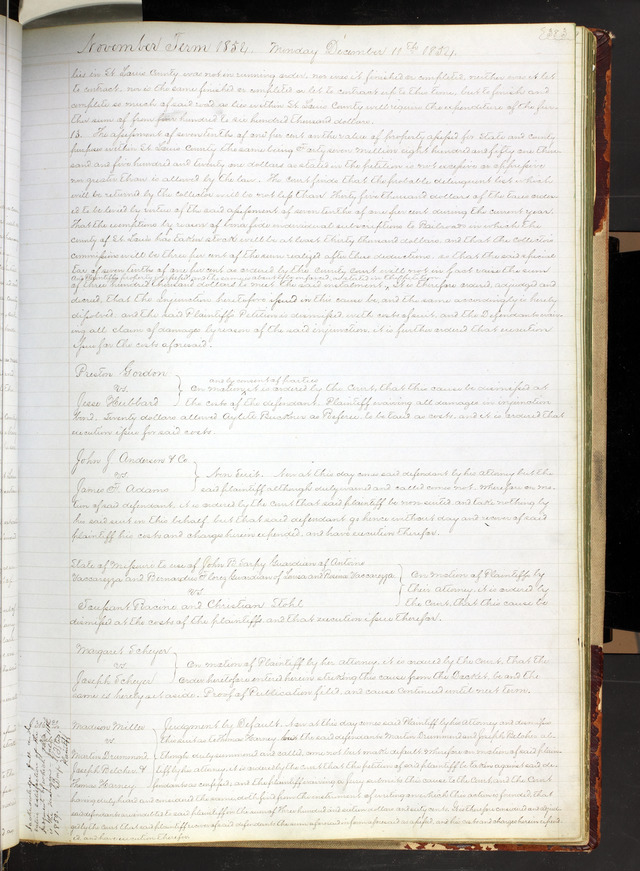 November Term 1854. Monday December 11th 1854.
lies in St Louis County was not in running order, nor was it finished or completed, neither was it let
to contract, nor is the same finished or completed or let to contract up to this time, but to finish and
complete so much of said road as lies within St Louis County will require the expenditure of the further
sum of from five hundred to six hundred thousand dollars.
13. The assessment of seven tenths of one per cent on the value of property assessed for State and County
purposes within St Louis County the same being Forty seven million eight hundred and fifty one thou-
sand and five hundred and twenty one dollars as stated in the petition is not excessive or oppressive
nor greater than is allowed by the law. The Court finds that the probable delinquent list which
will be returned by the collector will be not less than Thirty five thousand dollars of the taxes order-
ed to be levied by virtue of the said assessment of seven tenths of one per cent during the current year.
That the exemptions by reason of bona fide individual subscriptions to Railroads in which the
county of St Louis has taken stock will be at least thirty thousand dollars, and that the collectors
commission will be three per cent of the sum realized after these deductions, so that the said special
tax of seven tenths of one per cent as ordered by the County Court will not in fact raise the sum
of three hundred thousand dollars to meet the said instalments. It is therefore ordered, adjudged and
decreed, that the Injunction heretofore issued in this cause be, and the same accordingly is hereby
dissolved, and the said Plaintiffs Petition is dismissed with costs of suit, and the Defendants waiv-
ing all claim of damage by reason of the said injunction, it is further ordered that execution
issue for the costs aforesaid.
Preston Gordon
vs.
Jesse Hubbard
and by consent of parties
On motion, it is ordered by the Court, that this cause be dismissed at
the costs of the defendant. Plaintiff waiving all damages in injunction
bond. Twenty dollars allowed as Referee to be taxed as costs, and it is ordered that
execution issue for said costs.
John J. Anderson & Co
vs
James F. Adams
Non Suit. Now at this day comes said defendant by his attorney but the
said plaintiff although duly warned and called comes not. Wherefore on mo-
tion of said defendant, it is ordered by the court that said plaintiff be non suited and take nothing by
his said suit in this behalf but that said defendant go hence without day and recover of said
plaintiff his costs and charges herein expended, and have execution therefor.
State of Missouri to use of John Guardian of Antoine
and Bernardus Guardian of Louisa and
vs
Toussaint and Christian Stohl
On motion of Plaintiffs by
their attorney, it is ordered by
the Court, that this cause be
dismissed at the costs of the plaintiffs, and that execution issue therefor.
Margaret Scheyer
vs
Joseph Scheyer
On motion of Plaintiff by her attorney, it is ordered by the Court, that the
order heretofore entered herein striking this cause from the Docket, be and the
same is hereby set aside. Proof of Publication filed, and cause continued until next term.
Madison Miller
vs
Martin Drummond
Joseph Belcher &
Thomas Harney
Judgment by Default. Now at this day comes said Plaintiff by his attorney and dismisses
this suit as to Thomas Harney, and the said defendants Martin Drummond and Joseph Belcher al-
though duly summoned and called, come not but make default. Wherefore on motion of said plain-
tiff by his attorney, it is ordered by the Court that the petition of said plaintiff be taken against said de-
fendants as confessed, and the plaintiff waiving a jury submits this cause to the Court and the Court
having duly heard and considered the same doth find from the instrument of writing on which this action is founded, that
said defendants are indebted to said plaintiff in the sum of Three hundred and sixteen dollars and sixty cents. It is therefore considered and adjud-
ged by the Court that said plaintiff recover of said defendants the sum aforesaid in form aforesaid as assessed, and his costs and charges herein expend-
ed and have execution therefor.